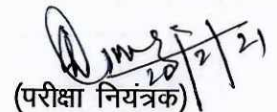 20/2/21
(परीक्षा नियंत्रक)